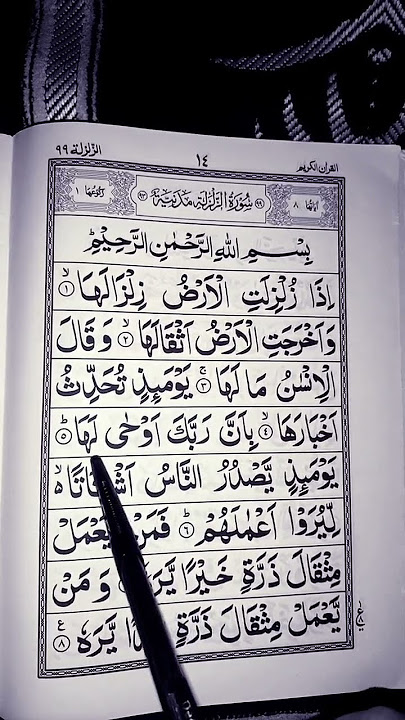 الزلزلة ٩٩
١٤
القرآن الكريم
اٰیاتها ٨
سُوْرَةُ الزِّلْزَالِ مَدَنِيَّةٌ
رکوعها ١
بِسْمِ اللّٰهِ الرَّحْمٰنِ الرَّحِيْمِ
اِذَا زُلْزِلَتِ الْاَرْضُ زِلْزَالَهَا ١
وَاَخْرَجَتِ الْاَرْضُ اَثْقَالَهَا ٢ وَقَالَ
الْاِنْسٰنُ مَا لَهَا ٣ يَوْمَئِذٍ تُحَدِّثُ
اَخْبَارَهَا ٤ بِاَنَّ رَبَّكَ اَوْحٰى لَهَا ٥
يَوْمَئِذٍ يَّصْدُرُ النَّاسُ
لِّيُرَوْا اَعْمٰلَهُمْ ٦
مِثْقَالَ ذَرَّةٍ خَيْرًا وَمَنْ
يَّعْمَلْ مِثْقَالَ ذَرَّةٍ يَّرَهٗ ٨